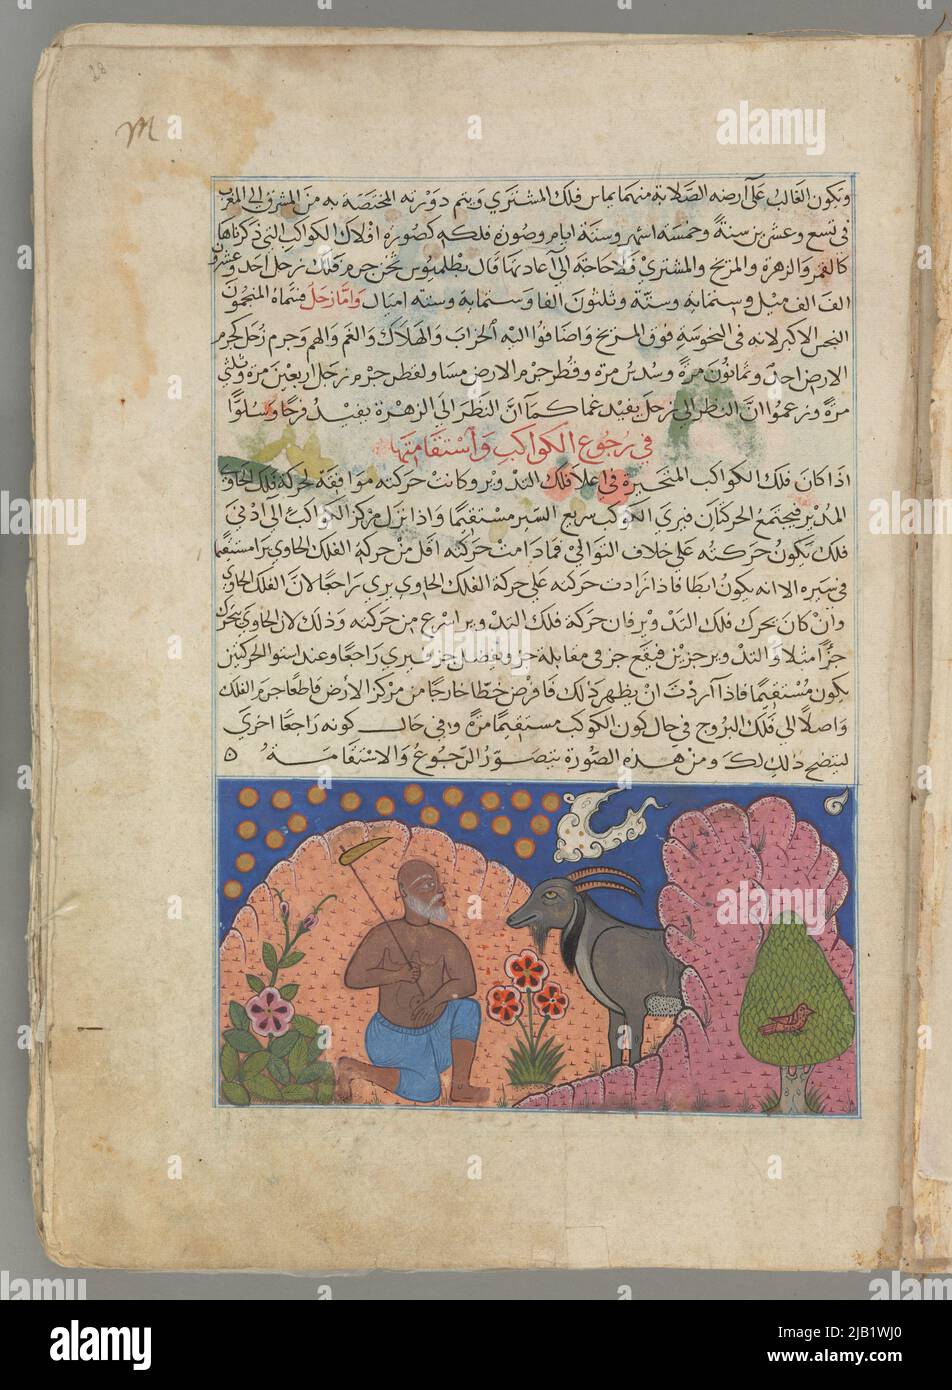 28
m
وتكون الغالب على أرضه الصلابة منهما يماس فلك المشتري ويتم دورته المختصة به من المشرق الى المغرب
في تسع وعشرين سنة وخمسة اشهر وستة ايام وصورة فلكه كصورة افلاك الكواكب التي ذكرناها
كالقمر والزهرة والمريخ والمشتري فلا حاجة الى اعادتها قال بطلميوس ثخن جرم فلك زحل احد وعشرون
الف الف ميل وستمايه وستة وثلثون الفا وستمايه وسته اميال واما زحل فتماه المنجمون
النحس الاكبر لانه في النحوسة فوق المريخ واضافوا اليه الخراب والهلاك والغم والهم وجرم زحل كجرم
الارض احد وثمانون مرة وسدس مرة وقطر جرم الارض مساو لقطر جرم زحل اربعين مرة وثلثي
مرة وزعموا ان النظر الى زحل يفيد غما كما ان النظر الى الزهرة يفيد فرحا وسلوا
في رجوع الكواكب واستقامتها
اذا كان فلك الكواكب المتحيرة في اعلا فلك التدوير وكانت حركته موافقة لحركة فلك الحاوي
المدير فيجتمع الحركتان فيرى الكوكب سريع السير مستقيما واذا نزل مركز الكواكب الى ادنى
فلك تكون حركته على خلاف التوالي فمادامت حركته اقل من حركة الفلك الحاوي يرا مستقيما
في سيره الا انه يكون ابطا فاذا زادت حركته على حركة الفلك الحاوي يرى راجعا لان الفلك الحاوي
وان كان يحرك فلك التدوير فان حركة فلك التدوير اسرع من حركته وذلك لان الحاوي يتحرك
جزأ مثلا والتدوير جزين فيقع جز في مقابلة جز ويفضل جز فيرى راجعا وعند استوا الحركتين
يكون مستقيما فاذا اردت ان يظهر ذلك فافرض خطا خارجا من مركز الارض قاطعا جرم الفلك
واصلا الى فلك البروج في حال كون الكوكب مستقيما مرة وفي حال كونه راجعا اخرى
ليتضح ذلك لك ومن هذه الصورة يتصور الرجوع والاستقامة ه
alamy
Image ID: 2JB1WJ0
www.alamy.com